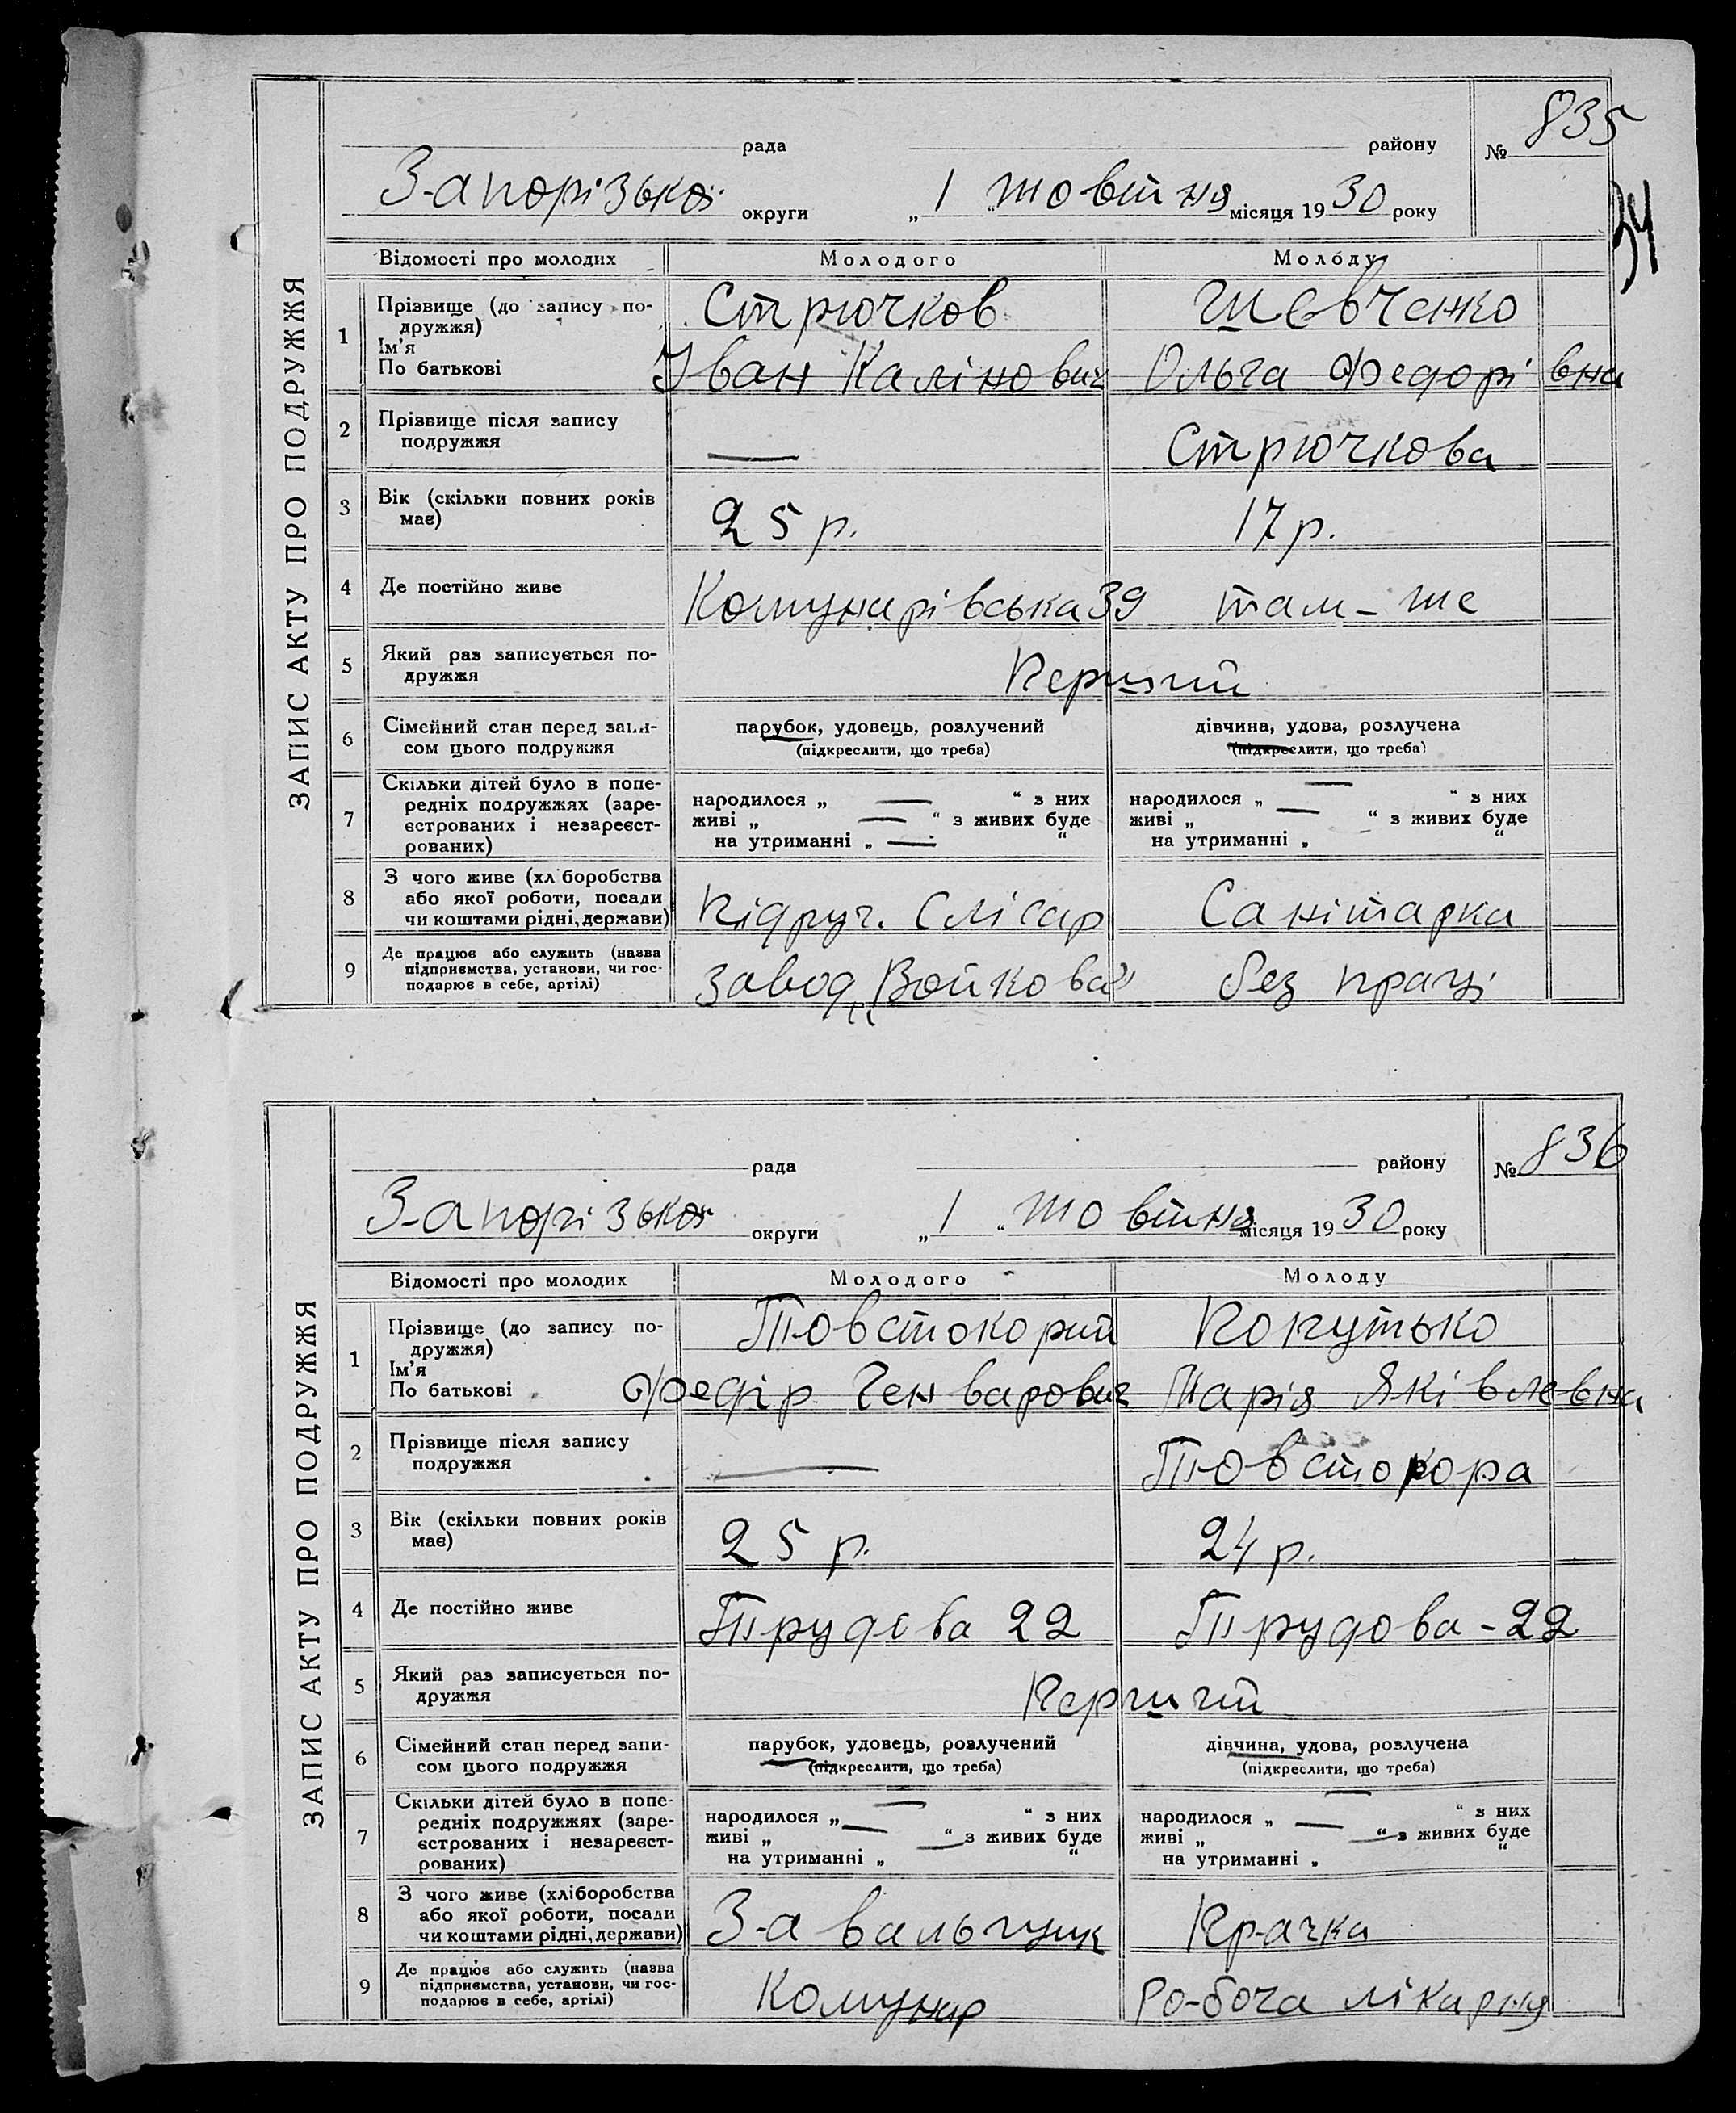 ЗАПИС АКТУ ПРО ПОДРУЖЖЯ
рада району № 835
Запорізької округи „1“ жовтня місяця 1930 року
34
Відомості про молодих Молодого Молоду
1 Прізвище (до запису по- Стрючков Шевченко
дружжя)
Ім'я
По батькові Іван Калінович Ольга Федорівна
2 Прізвище після запису
подружжя — Стрючкова
3 Вік (скільки повних років
має) 25 р. 17 р.
4 Де постійно живе Комунарівська 39 там-же
5 Який раз записується по-
дружжя Перший
6 Сімейний стан перед запи- парубок, удовець, розлучений дівчина, удова, розлучена
сом цього подружжя (підкреслити, що треба) (підкреслити, що треба)
7 Скільки дітей було в попе-
редніх подружжях (заре- народилося „ — “ з них народилося „ — “ з них
єстрованих і незареєст- живі „ — “ з живих буде живі „ — “ з живих буде
рованих) на утриманні „ — “ на утриманні „ “
8 З чого живе (хліборобства
або якої роботи, посади
чи коштами рідні, держави) Підруч. Слісар Санітарка
9 Де працює або служить (назва
підприємства, установи, чи гос-
подарює в себе, артілі) завод „Войкова“ без праці
ЗАПИС АКТУ ПРО ПОДРУЖЖЯ
рада району № 836
Запорізької округи „1“ жовтня місяця 1930 року
Відомості про молодих Молодого Молоду
1 Прізвище (до запису по- Товстокорий Копутько
дружжя)
Ім'я
По батькові Федір Генварович Марія Яківлевна
2 Прізвище після запису
подружжя — Товстокора
3 Вік (скільки повних років
має) 25 р. 24 р.
4 Де постійно живе Трудова 22 Трудова-22
5 Який раз записується по-
дружжя Перший
6 Сімейний стан перед запи- парубок, удовець, розлучений дівчина, удова, розлучена
сом цього подружжя (підкреслити, що треба) (підкреслити, що треба)
7 Скільки дітей було в попе-
редніх подружжях (заре- народилося „ — “ з них народилося „ — “ з них
єстрованих і незареєст- живі „ — “ з живих буде живі „ — “ з живих буде
рованих) на утриманні „ “ на утриманні „ “
8 З чого живе (хліборобства
або якої роботи, посади
чи коштами рідні, держави) Завальщик Прачка
9 Де працює або служить (назва
підприємства, установи, чи гос-
подарює в себе, артілі) Комунар Робоча лікарня